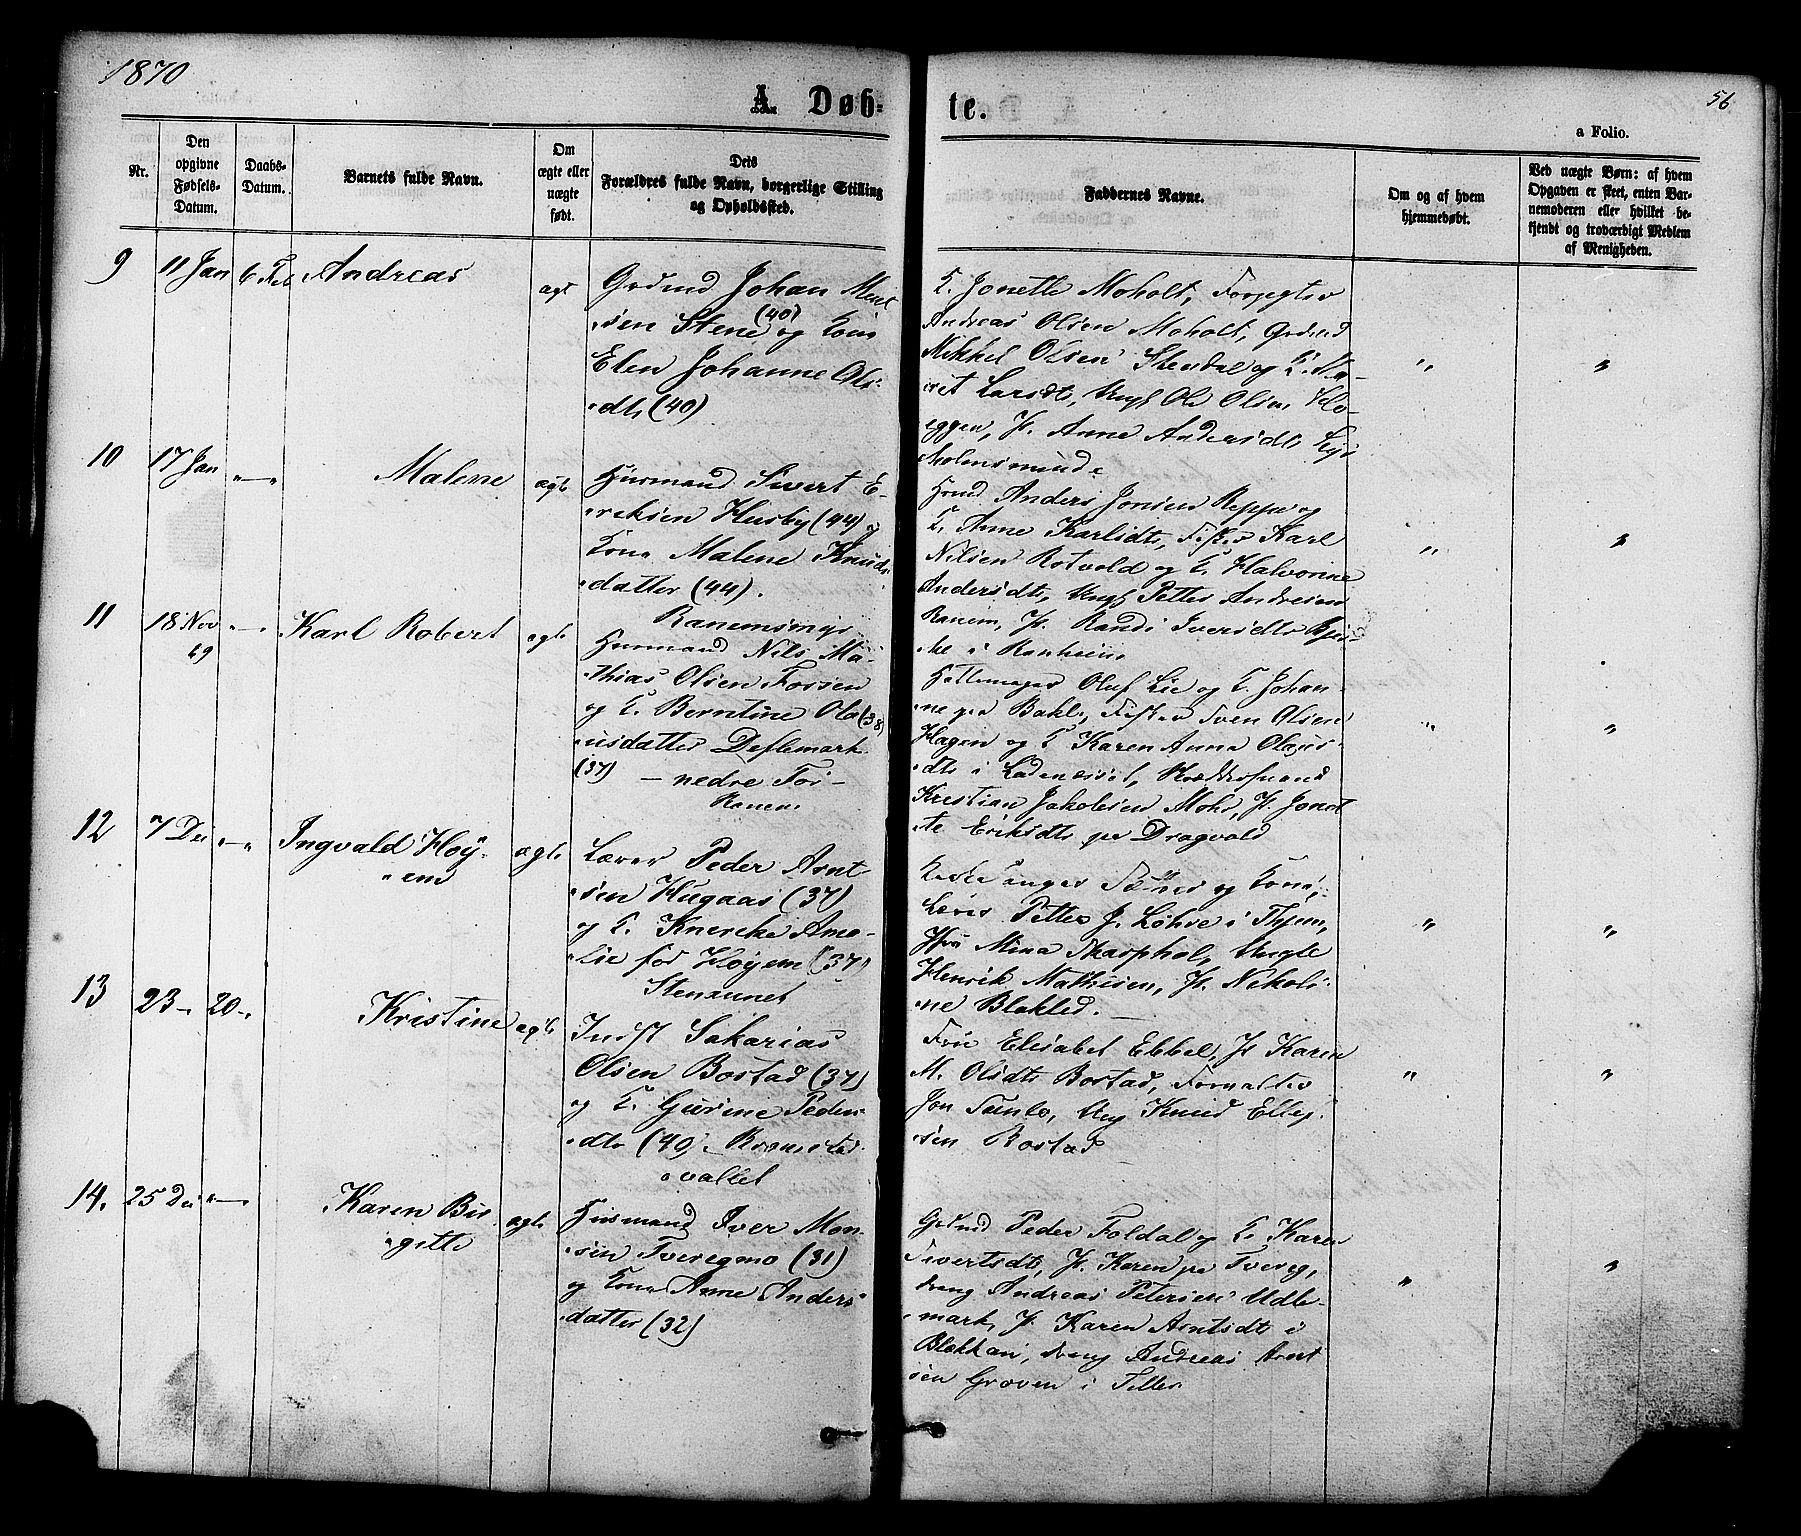 1870
56
A. Døb-
te.
a Folio.
Nr.
Den
opgivne
Fødsels-
Datum.
Daabs-
Datum.
Barnets fulde Navn.
Om
ægte eller
uægte
født.
Deis
Forældres fulde Navn, borgerlige Stilling
og Opholdssted.
Faddernes Navne.
Om og af hvem
hjemmedøbt.
Ved uægte Børn: af hvem
Opgaven er skeet, enten Bar-
nemoderen eller hvilket be-
kjendt og troværdigt Medlem
af Menigheden.
9 11 Jan 6 Feb Andreas ægt
Grdmd Johan Ment
sen Stene (40) og Kone
Elen Johanne Ols
dtr (40)
K. Jonette Moholt, Forpagter
Andreas Olsen Moholt, Grdmd
Mikkel Olsen Stendal og K. Ma-
rit Larsdtr, Ungk Ole Olsen
eggen, P. Anne Andersdtr
" "
10 17 Jan " — " Malene ægte
Husmand Sivert E-
reksen Husby (44) og
Kone Malene Knuds
datter (44).
Ranemsmyr
Grmd Anders Jonsen Reppe og
K. Anne Karlsdtr, Fisker Karl
Nilsen Rotvold og K. Halvorine
Andersdtr, Ungk Petter Andresen
Ranem, P. Randi Iversdtr
i Ranheim
" "
11 18 Nov 69 " — " Karl Robert ægte
Husmand Nils Ma-
thias Olsen Forsen (38)
og K. Berntine Ola
usdatter Deflemark
(37) — nedre For-
Ranem
Hattemager Oluf Lie og K. Johan-
ne paa Bakl, Fisker Sven Olsen
Hagen og K Karen Anna Olaus-
dtr i Ladenæsset,
Kristian Jakobsen Mohr, P. Jonet
te Eriksdtr paa Dragvold
" "
12 7 Dec " — " Ingvald Høy-
em ægte
Lærer Peder Arnt
sen Hugaas (37)
og K. Knereke Ama-
lie fød Høyem (37)
Stenaunet
Kirkesanger Sæther og Kone,
Lærer Petter J. Løhre i Thjem,
Frø Mina Skarphol, Ungk
Henrik Mathisen, P. Nikoli
ne Blakted. —
" "
13 23 — " 20 — " Kristine ægte
Indst Sakarias
Olsen Bostad (37)
og K. Gurine Peders
dtr (40)
vallet
Frø Elisabet Ebbel, P Karen
M. Olsdtr Bostad, Forvalter
Jon Tunlo, Ung Knud Ellef
sen Bostad
" "
14. 25 Dec " — " Karen Bir
gitte ægte
Husmand Iver Mon-
sen Tveregmo (31)
og Kone Anne Anders
datter (32)
Grdmd Peder Foldal og K Karen
Sivertsdtr, P. Karen paa Tvereg,
dreng Andreas Petersen Udle-
mark, P Karen Arntsdtr i
Blekkan, dreng Andreas Arnt
sen Groven i Tiller
" "